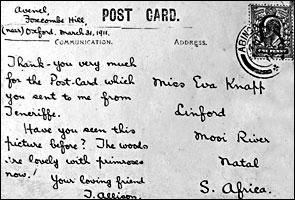 Avenel,
Foxcombe Hill,
(near) Oxford. March 31, 1911.
POST CARD.
COMMUNICATION.
ADDRESS.
Thank-you very much
for the Post-Card which
you sent to me from
Teneriffe.
Have you seen this
picture before? The woods
are lovely with primroses
now!
Your loving friend
J. Allison.
Miss Eva Knapp
Linford
Mooi River
Natal
S. Africa.